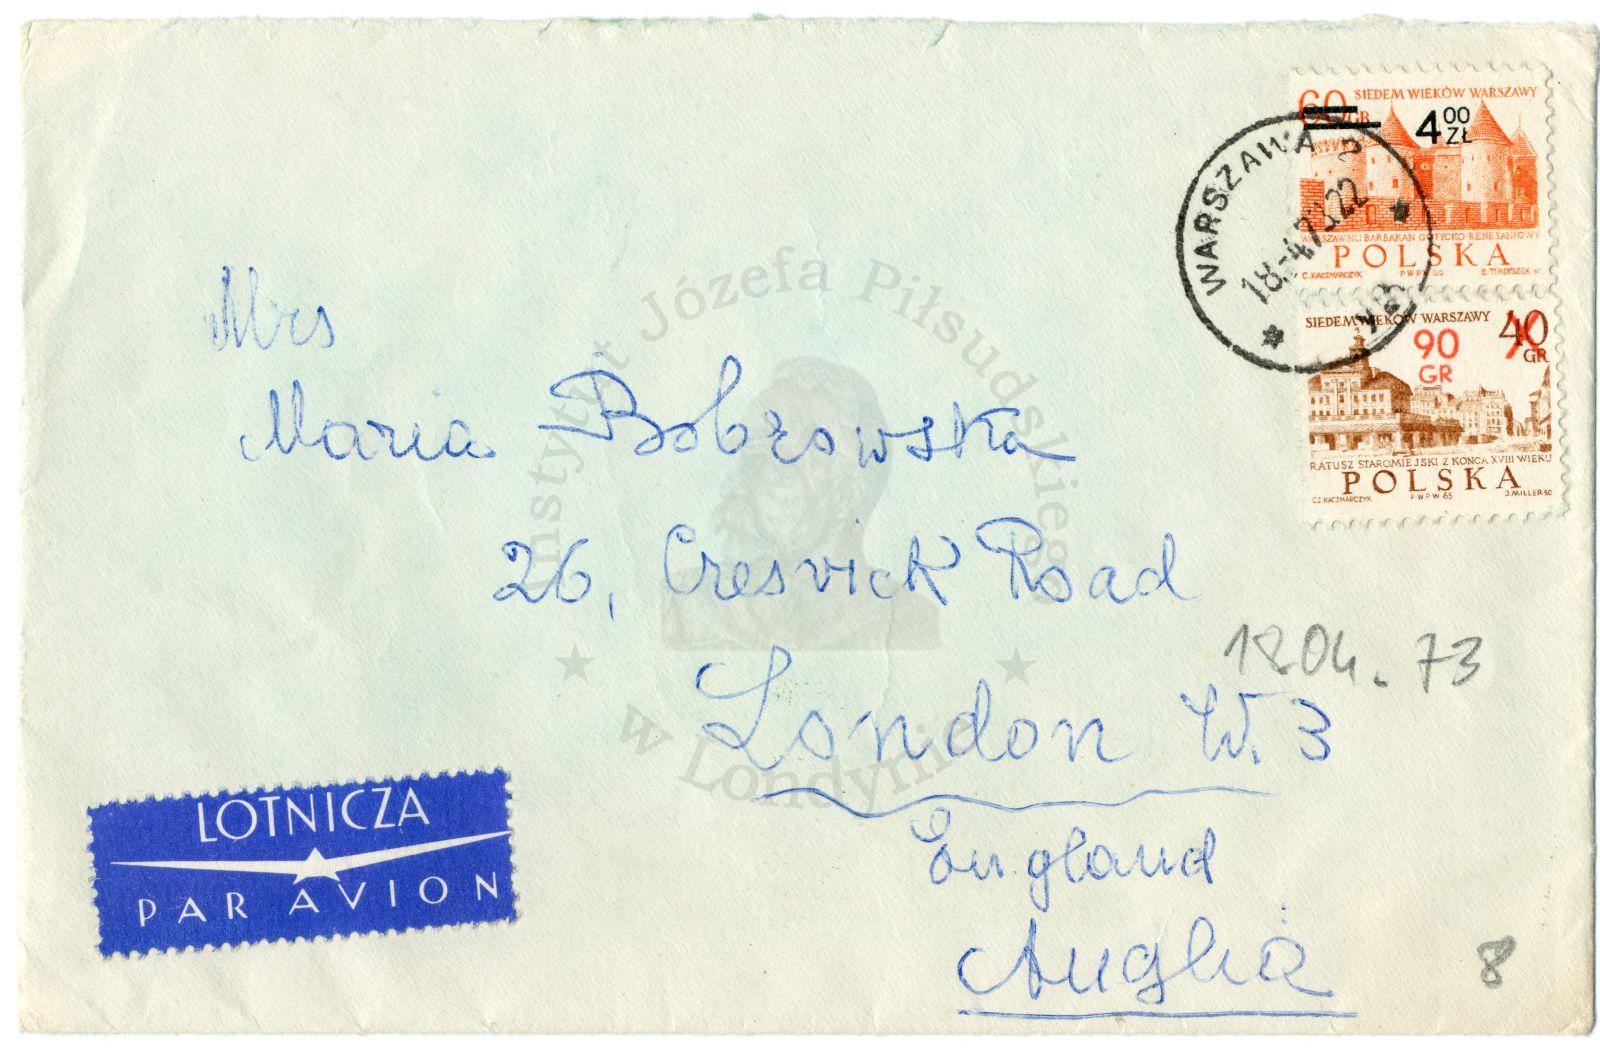 60 GR SIEDEM WIEKÓW WARSZAWY
4 00 ZŁ
WARSZAWSKI BARBAKAN GOTYCKO-RENESANSOWY
POLSKA
C. KACZMARCZYK PWPW 65 E. TIRDISZEK sc.
WARSZAWA 2
18.-4.73.22
SIEDEM WIEKÓW WARSZAWY 40 GR
90 GR
RATUSZ STAROMIEJSKI Z KOŃCA XVIII WIEKU
POLSKA
CZ. KACZMARCZYK PWPW 65 J. MILLER SC
Mrs
Maria Bobrowska
26, Cresvick Road
18 04. 73
London W. 3
England
Anglia
8
LOTNICZA
PAR AVION
Instytut Józefa Piłsudskiego
w Londynie